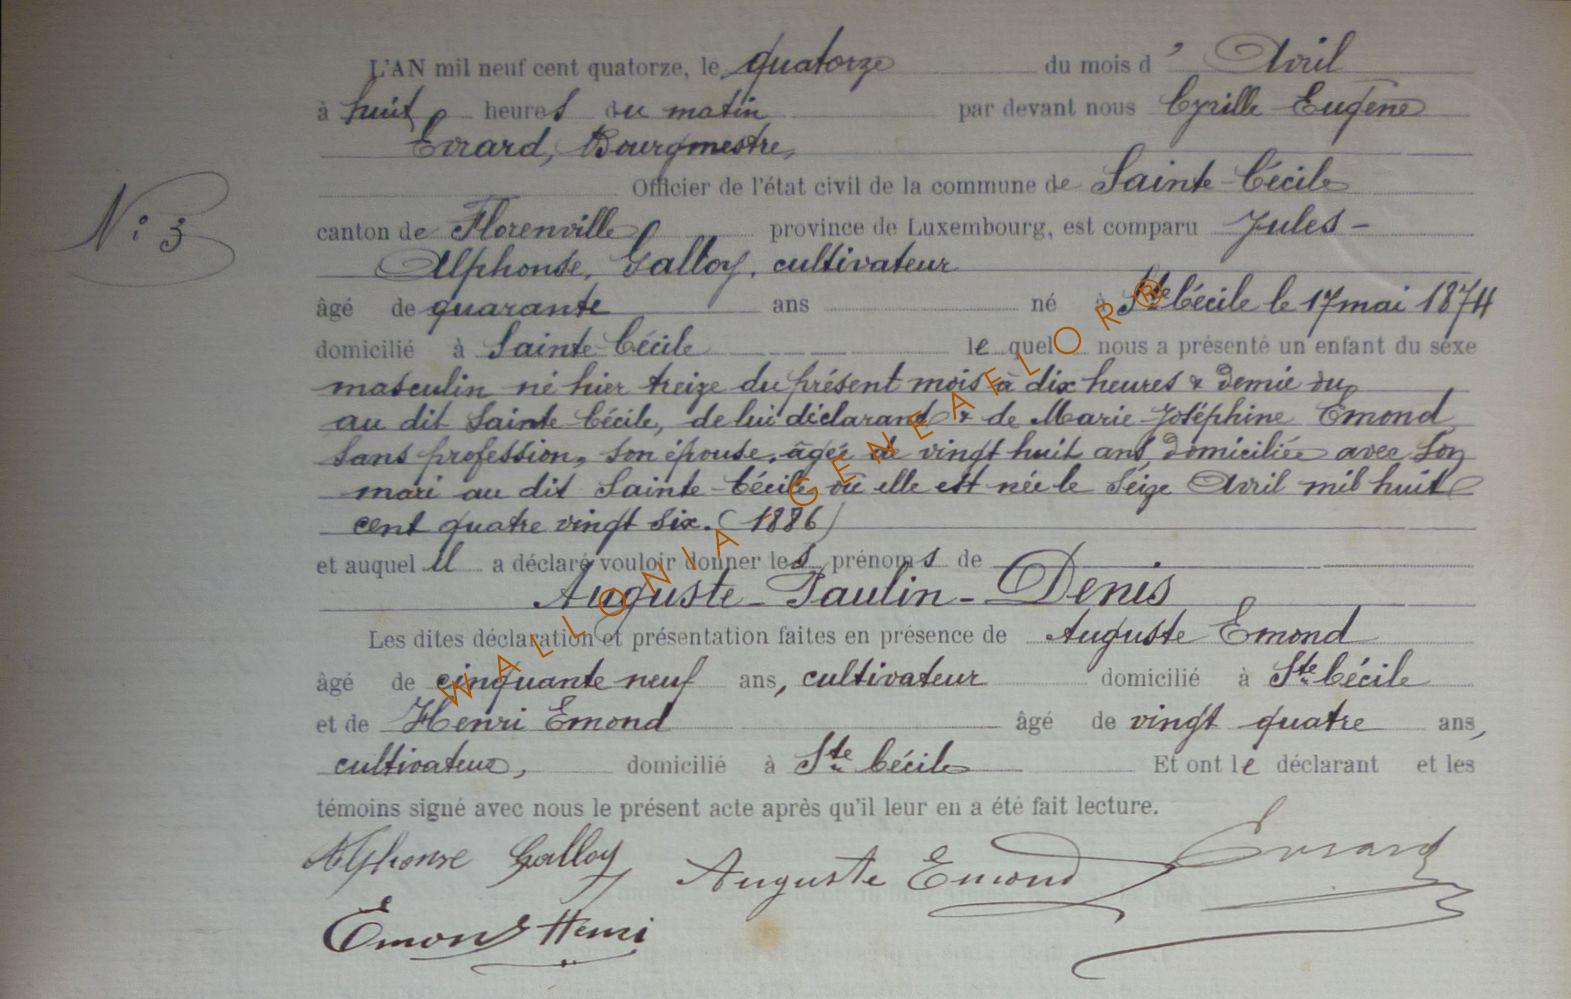 L'AN mil neuf cent quatorze, le quatorze du mois d' Avril
à huit heures du matin par devant nous Cyrille Eugène
Evrard, Bourgmestre,
Officier de l'état civil de la commune de Sainte-Cécile
canton de Florenville province de Luxembourg, est comparu Jules-
Alphonse, Galloy, cultivateur
âgé de quarante ans né à Ste Cécile le 17 mai 1874
domicilié à Sainte-Cécile lequel nous a présenté un enfant du sexe
N: 3
masculin né hier treize du présent mois à dix heures & demie du
au dit Sainte-Cécile, de lui déclarant & de Marie-Joséphine Emond
sans profession, son épouse, âgée de vingt huit ans, domiciliée avec son
mari au dit Sainte-Cécile, où elle est née le seize Avril mil huit
cent quatre vingt six. (1886)
et auquel il a déclaré vouloir donner les prénoms de
Auguste-Paulin-Denis
Les dites déclaration et présentation faites en présence de Auguste Emond
âgé de cinquante neuf ans, cultivateur domicilié à Ste Cécile
et de Henri Emond âgé de vingt quatre ans,
cultivateur, domicilié à Ste Cécile Et ont le déclarant et les
témoins signé avec nous le présent acte après qu'il leur en a été fait lecture.
Alphonse Galloy Auguste Emond Evrard
Emond Henri
WALLONIA-GENEAFLOR®